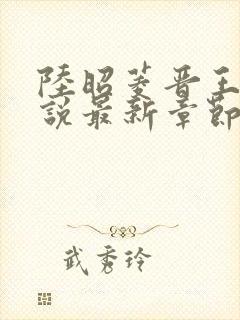 陸昭菱晉王
說最新章節
武秀玲